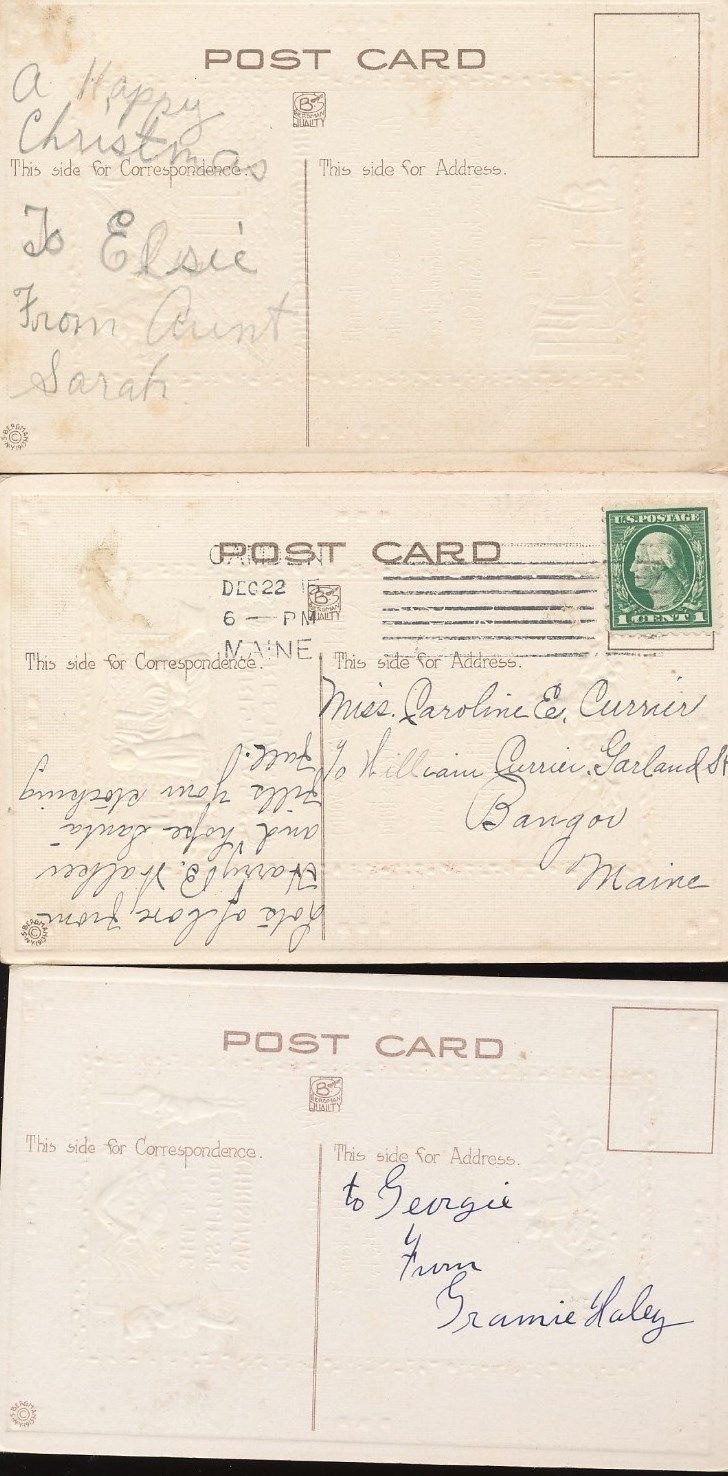 POST CARD
A Happy
Christmas
B
BERGMAN
QUALITY
This side for Correspondence.
This side for Address.
To Elsie
From Aunt
Sarah
POST CARD
U.S. POSTAGE
1 CENT 1
CAMDEN
DEC 22
6 — PM
MAINE
BERGMAN
QUALITY
This side for Correspondence.
This side for Address.
Miss. Caroline E. Currier
c/o William Currier. Garland St
Bangor
Maine
Lots of love from
Harry B. Walker
and hope Santa
fills your stocking
full.
POST CARD
B
BERGMAN
QUALITY
This side for Correspondence.
This side for Address.
to Georgie
From
Gramie Haley